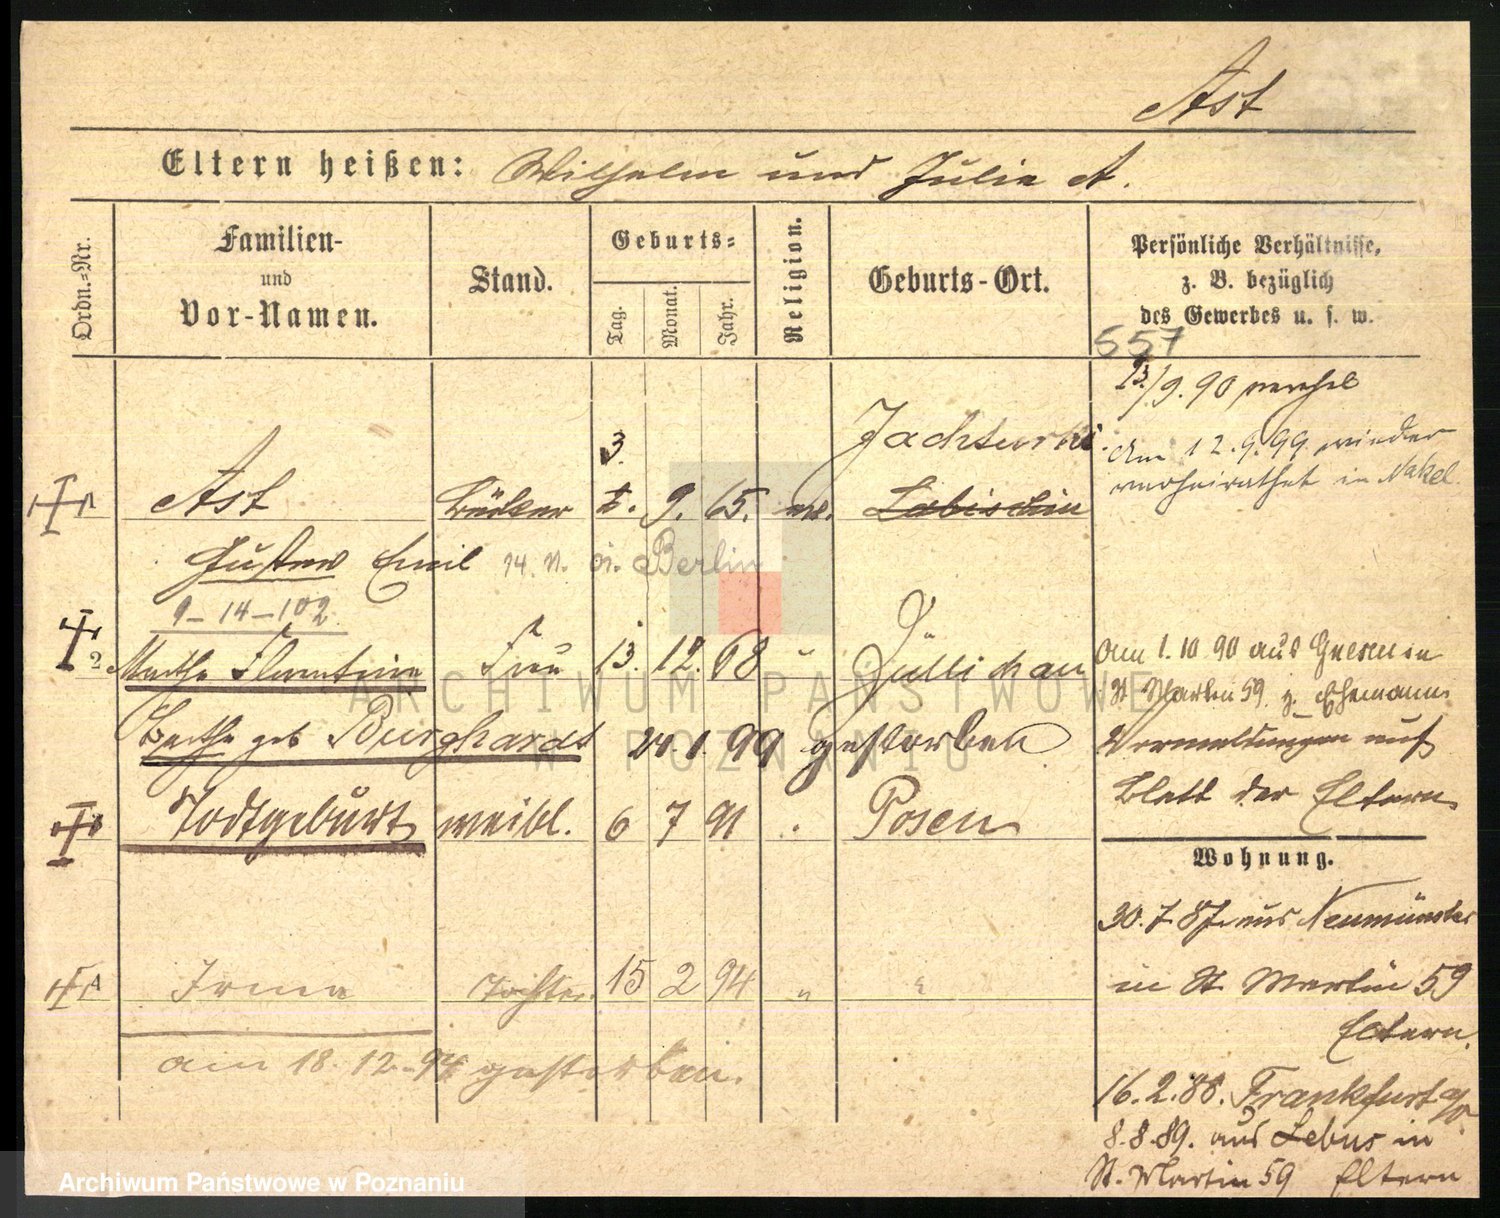 Ast
Eltern heißen: Wilhelm und Julie A.
Ordn.=Nr.
Familien-
und
Vor-Namen.
Stand.
Geburts=
Tag.
Monat.
Jahr.
Religion.
Geburts-Ort.
Persönliche Verhältnisse,
z. B. bezüglich
des Gewerbes u. s. w.
557
13./9. 90 verehel
am 12.9.99 wieder
verheirathet in Nakel.
3. Jachterki
Ast Bäcker 9. 65. ev. Labischin
Gustav Emil 14. Berlin
9-14-102
2 Martha Florentine Frau 13. 12. 68 " Züllichau
Bertha geb Burghardt 24.1.99 gestorben
am 1.10 90 aus Gnesen in
St Martin 59 z. Ehemann
Vermeldungen auf
Blatt der Eltern
Todtgeburt weibl. 6 7 91 . Posen
Wohnung.
30.7 87 aus Neumünster
in St Martin 59
Eltern.
Irma Tochter. 15 2 94 " "
am 18. 12. 94 gestorben.
16.2.88. Frankfurt a/O.
8.8.89. aus Lebus in
St. Martin 59 Eltern
ARCHIWUM PAŃSTWOWE
W POZNANIU
Archiwum Państwowe w Poznaniu